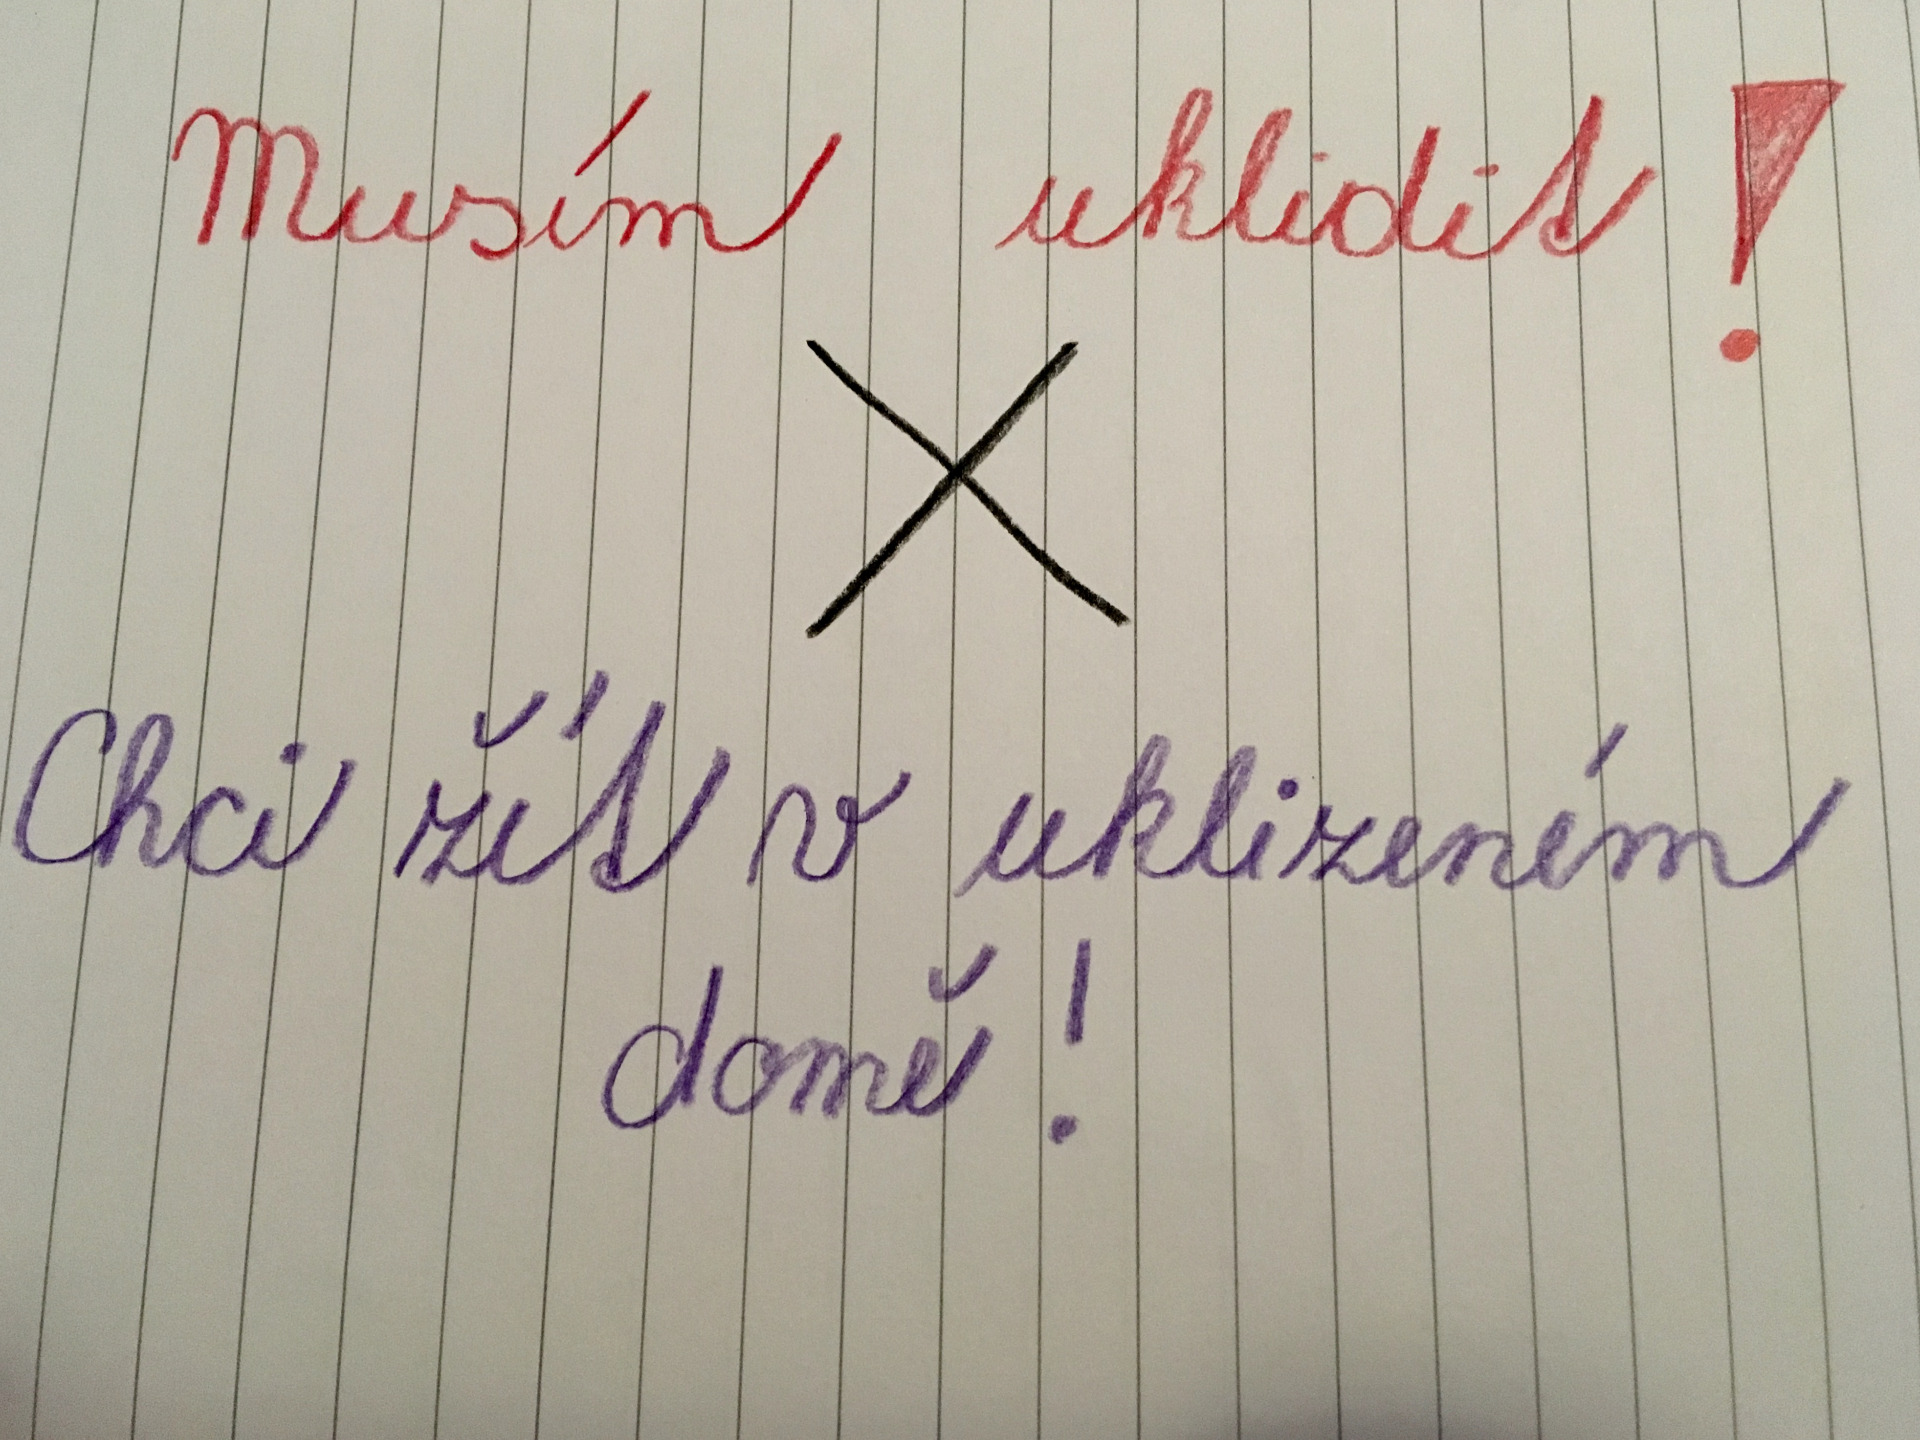 Musím uklidit!
X
Chci žít v uklizeném
domě!